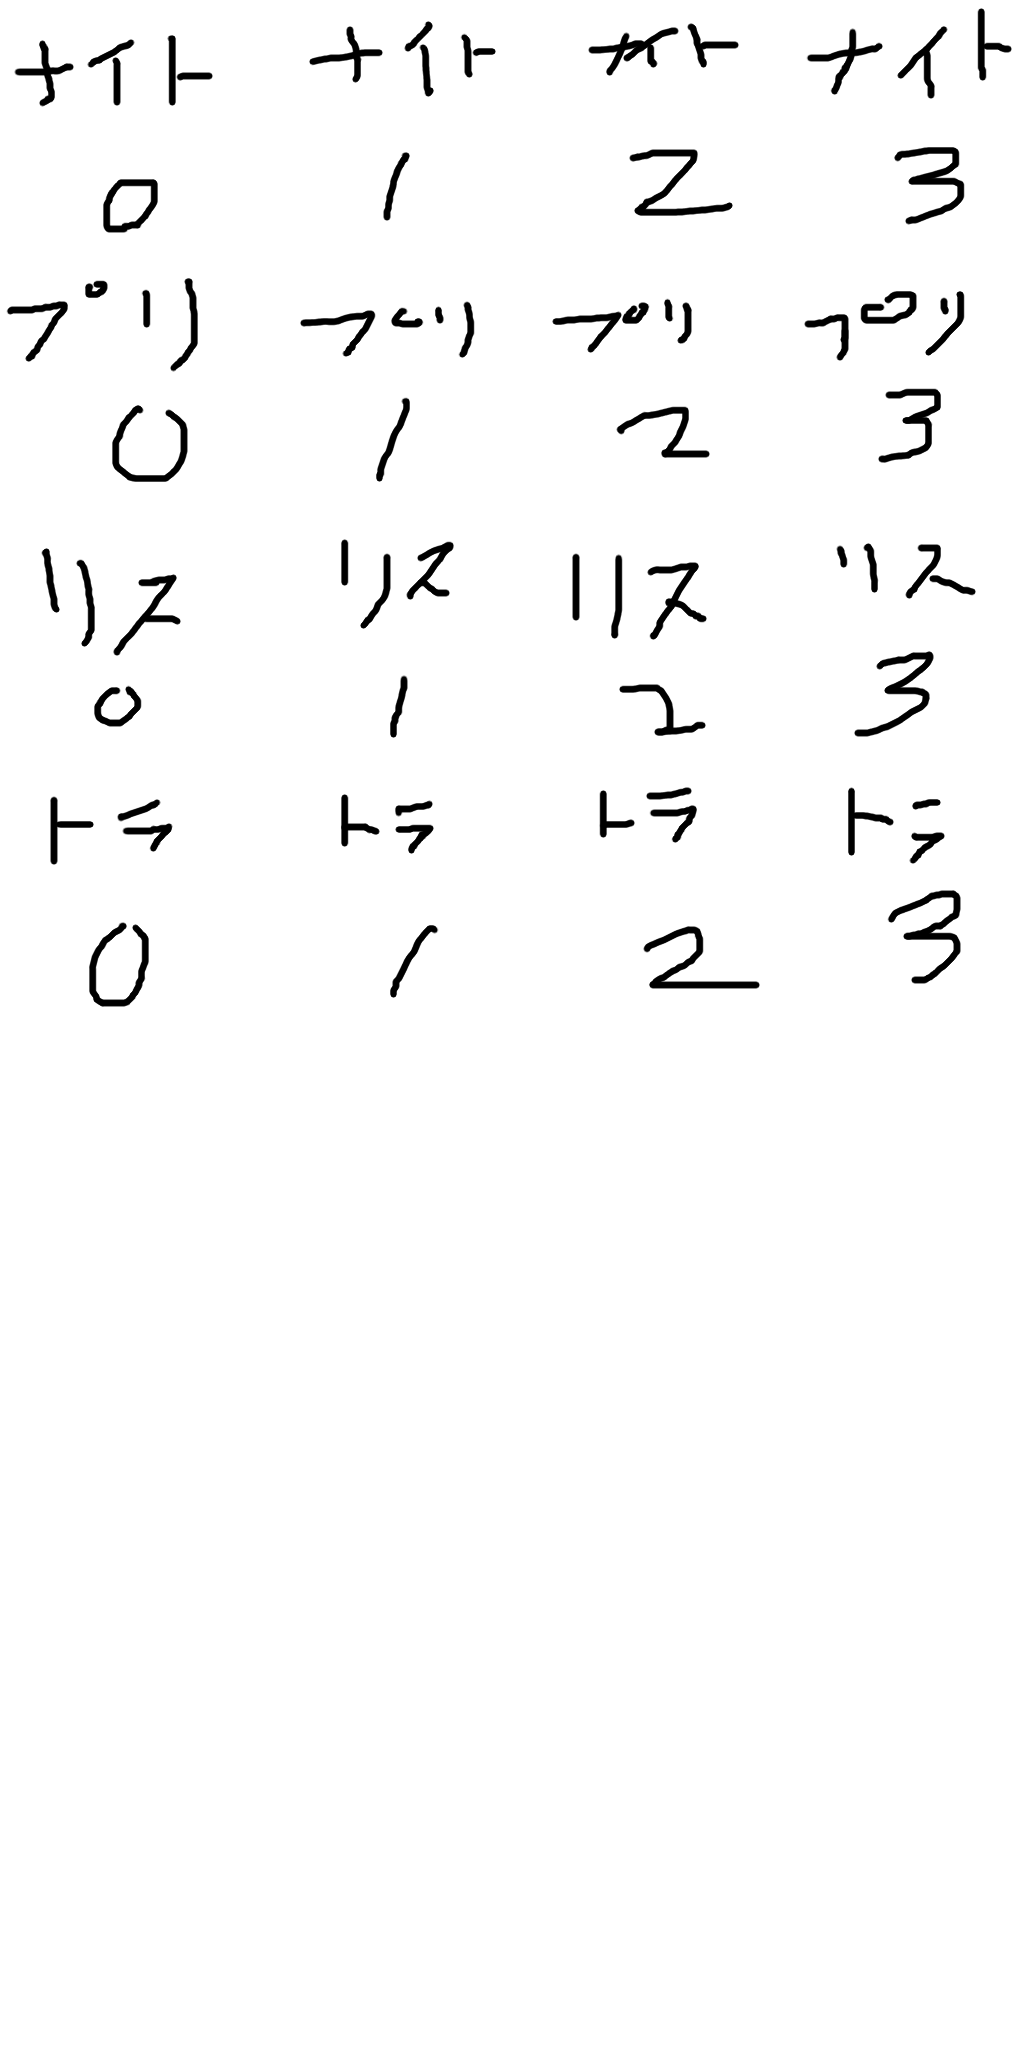 ナイト ナイト ナイト ナイト
0 1 2 3
プリ プリ プリ プリ
0 1 2 3
リス リス リス リス
0 1 2 3
トラ トラ トラ トラ
0 1 2 3